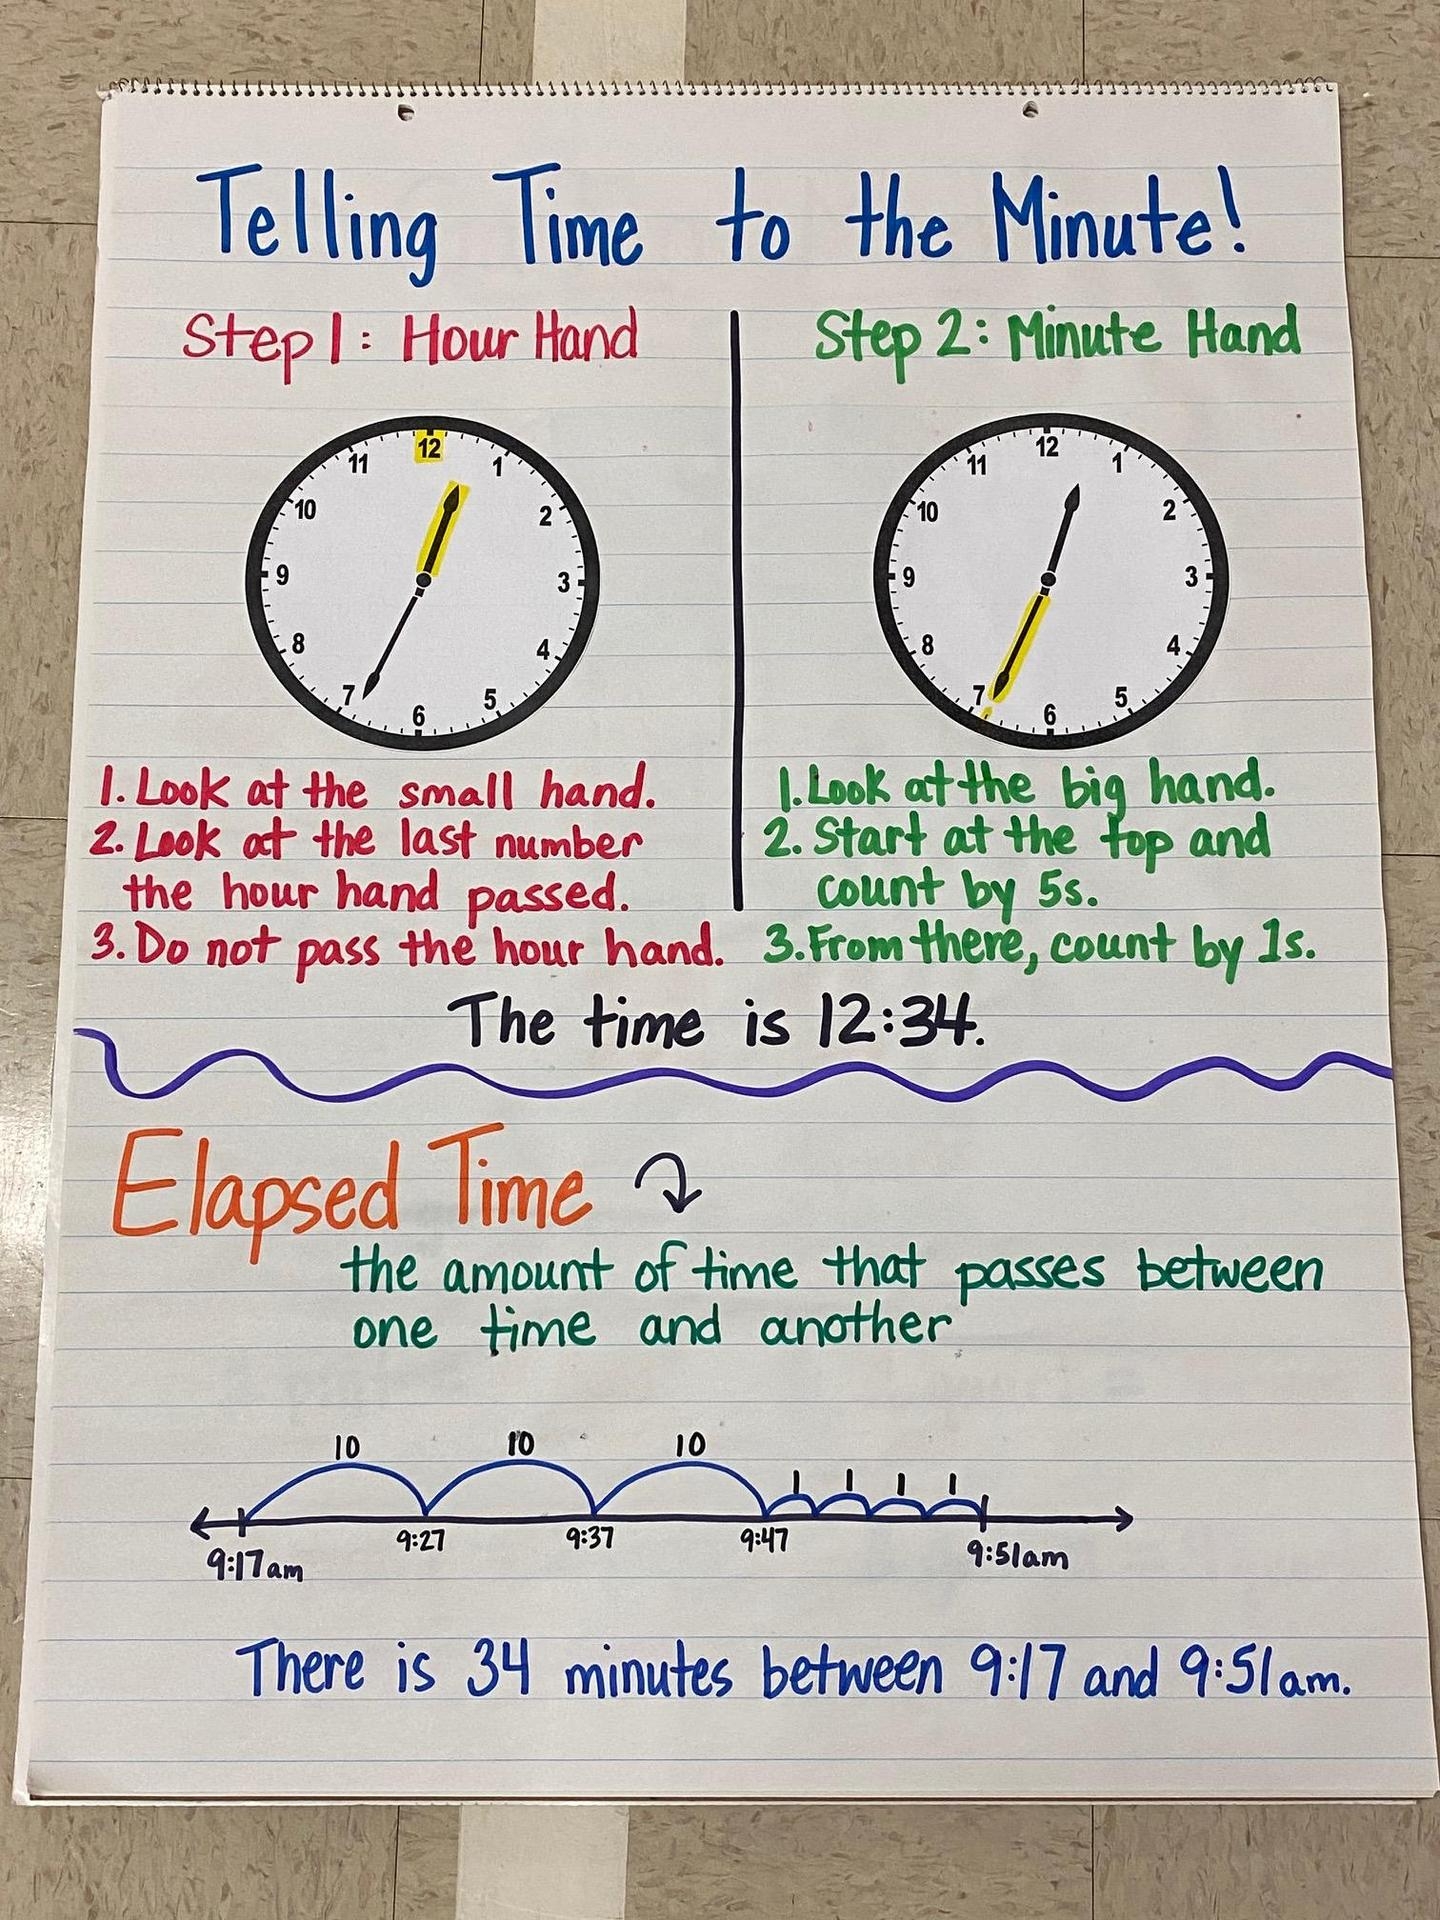 Telling Time to the Minute!
Step 1: Hour Hand
12
11
1
10
2
9
3
8
4
7
5
6
1. Look at the small hand.
2. Look at the last number
the hour hand passed.
3. Do not pass the hour hand.
Step 2: Minute Hand
12
11
1
10
2
9
3
8
4
7
5
6
1. Look at the big hand.
2. Start at the top and
count by 5s.
3. From there, count by 1s.
The time is 12:34.
Elapsed Time
the amount of time that passes between
one time and another
10 10 10 1 1 1 1
9:17am 9:27 9:37 9:47 9:51am
There is 34 minutes between 9:17 and 9:51am.